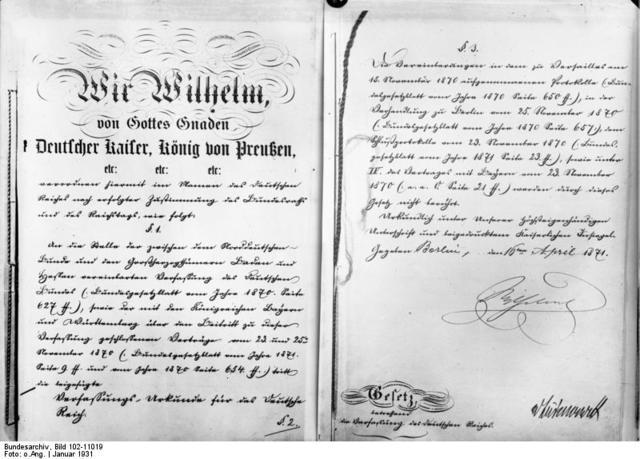 Wir Wilhelm,
von Gottes Gnaden
Deutscher Kaiser, König von Preußen,
etc: etc: etc:
verordnen hiermit im Namen des Deutschen
Reichs, nach erfolgter Zustimmung des Bundesraths
und des Reichstags, wie folgt:
§. 1.
An die Stelle der zwischen dem Norddeutschen
Bunde und den Großherzogthümern Baden und
Hessen vereinbarten Verfassung des Deutschen
Bundes (Bundesgesetzblatt vom Jahre 1870. Seite
627 ff.), sowie der mit den Königreichen Bayern
und Württemberg über den Beitritt zu dieser
Verfassung geschlossenen Verträge vom 23. und 25.
November 1870 (Bundesgesetzblatt vom Jahre 1871.
Seite 9 ff. und vom Jahre 1870 Seite 654 ff.) tritt
die beigefügte
Verfassungs-Urkunde für das Deutsche
Reich.
§. 2.
§. 3.
Die Vereinbarungen in dem zu Versailles am
15. November 1870 aufgenommenen Protokolle (Bun-
desgesetzblatt vom Jahre 1870 Seite 650 ff.), in der
Verhandlung zu Berlin vom 25. November 1870
(Bundesgesetzblatt vom Jahre 1870 Seite 657), dem
Schlußprotokolle vom 23. November 1870 (Bundes-
gesetzblatt vom Jahre 1871 Seite 23 ff.), sowie unter
IV. des Vertrages mit Bayern vom 23. November
1870 (a. a. O. Seite 21 ff.) werden durch dieses
Gesetz nicht berührt.
Urkundlich unter Unserer Höchsteigenhändigen
Unterschrift und beigedrucktem Kaiserlichen Insiegel.
Gegeben Berlin, den 16ten April 1871.
Wilhelm
Gesetz,
betreffend
die Verfassung des Deutschen Reiches.
Bundesarchiv, Bild 102-11019
Foto: o.Ang. | Januar 1931